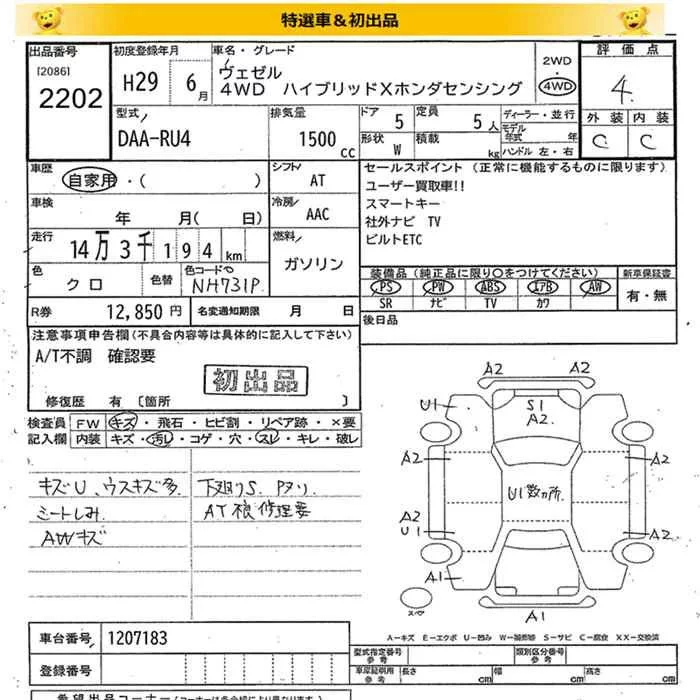 特選車＆初出品
出品番号
[2086]
2202
初度登録年月
H29 6月
車名・グレード
ヴェゼル
4WD ハイブリッドXホンダセンシング
2WD
4WD
評価点
4.
外装 内装
C C
型式
DAA-RU4
排気量
1500 cc
ドア 5
定員 5人
形状 W
積載 kg
ディーラー・並行
モデル年式 年
ハンドル 左・右
車歴
自家用・( )
シフト
AT
車検
年 月( 日)
冷房
AAC
走行
14万3千194km
燃料
ガソリン
色
クロ
色替
色コードNo
NH731P
R券 12,850円
名変通知期限 月 日
セールスポイント (正常に機能するものに限ります)
ユーザー買取車!!
スマートキー
社外ナビ TV
ビルトETC
装備品(純正品に限り○をつけてください)
PS PW ABS エアB AW
SR ナビ TV カワ
新車保証書
有・無
後日品
注意事項申告欄(不具合内容等は具体的に記入して下さい)
A/T不調 確認要
初出品
修復歴 有 〔箇所 〕
検査員
記入欄
FW キズ・飛石・ヒビ割・リペア跡・×要
内装 キズ・汚レ・コゲ・穴・スレ・キレ・破レ
キズU、ウスキズ多.
シートしみ.
AWキズ
下廻りS.
AT 修理要
A2
A2
U1
S1
A2.
A2
A2
U1数ヵ所.
A2
U1
A2
A1
A1
スペア
A-キズ E-エクボ U-凹み W-補修跡 S-サビ C-腐食 XX-交換済
車台番号 1207183
登録番号
型式指定番号
参考
類別区分番号
参考
車庫証明用
参考
長さ cm
幅 cm
高さ cm
希望出品コーナー